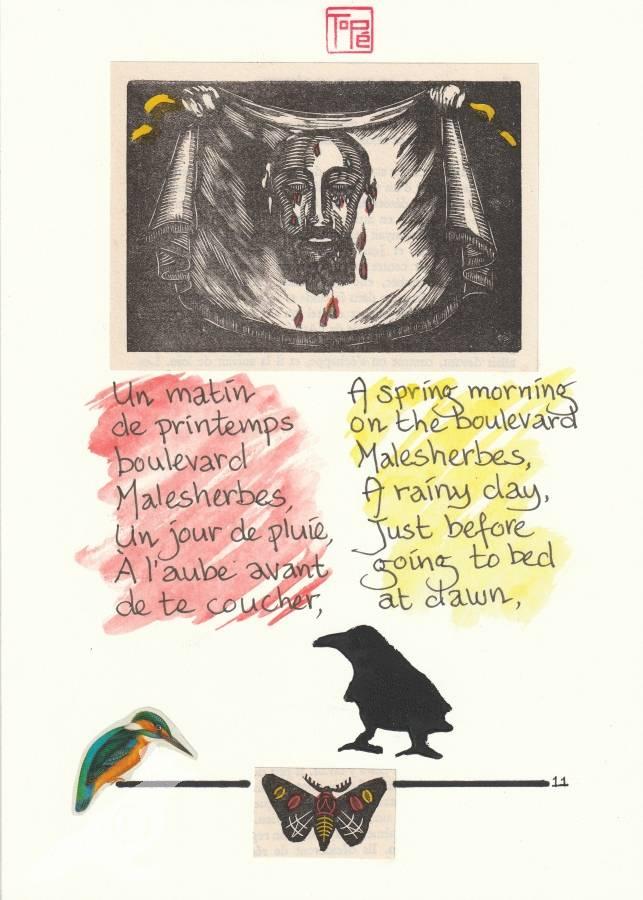 ToPé
Un matin
de printemps
boulevard
Malesherbes,
Un jour de pluie,
À l'aube avant
de te coucher,
A spring morning
on the boulevard
Malesherbes,
A rainy day,
Just before
going to bed
at dawn,
11